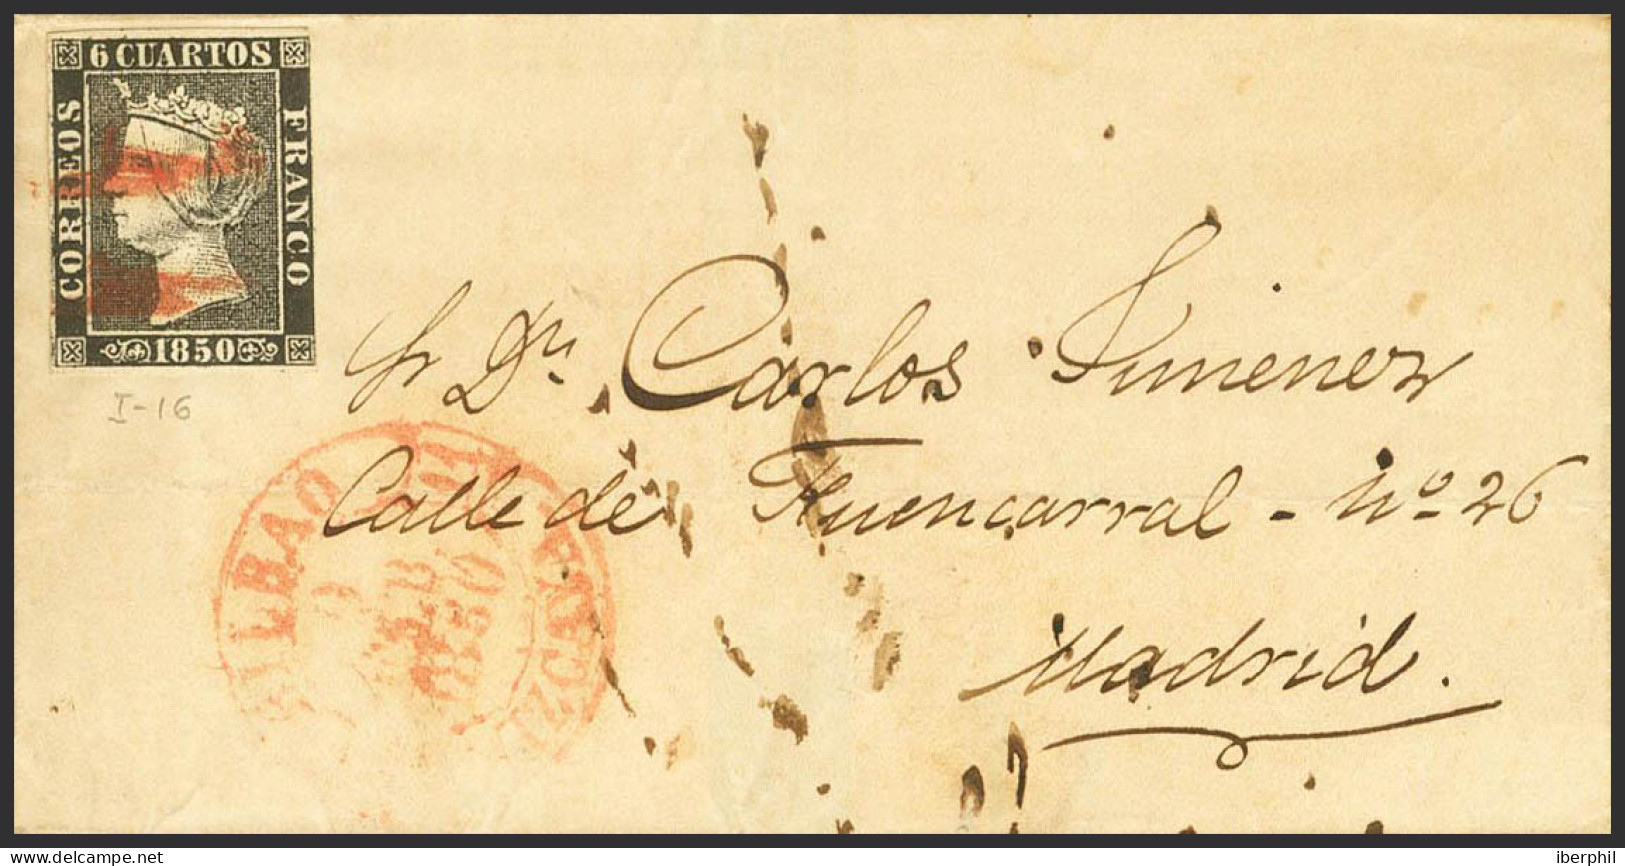 6 CUARTOS
CORREOS
FRANCO
1850
I-16
Sr Dn Carlos Jimenez
Calle de Fuencarral - Nº 26
Madrid.
BILBAO
FEB
1850
VIZCAYA
iberphil